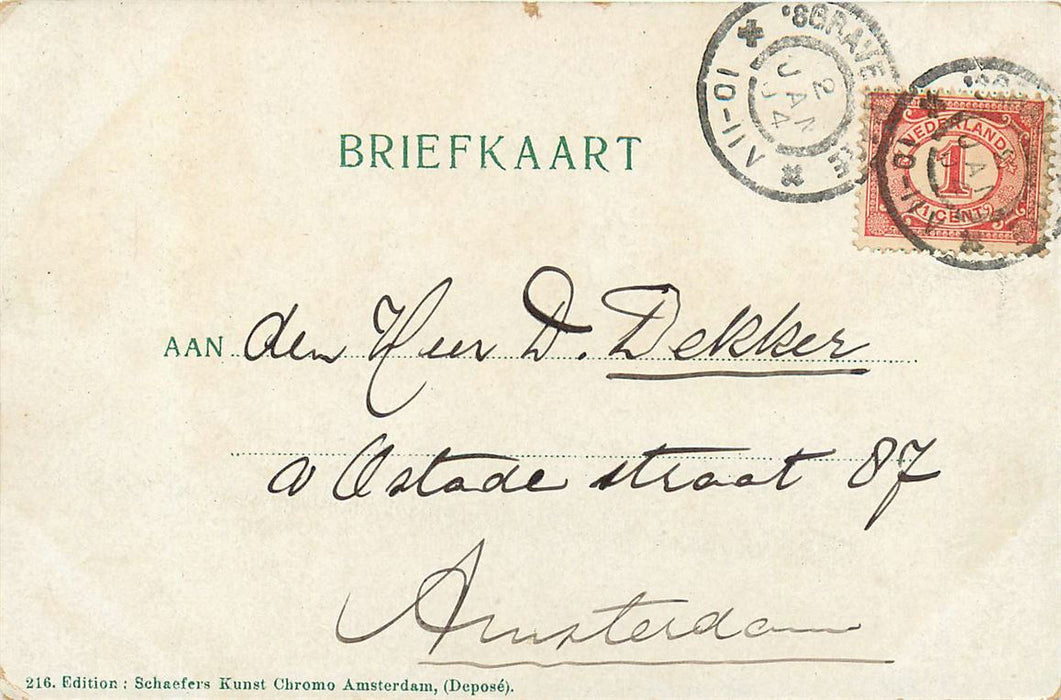 BRIEFKAART
'SGRAVE
2
JAN
04
10-11V
NEDERLAND
1
1 CENT
10-11V
AAN den Heer D. Dekker
v Ostade straat 87
Amsterdam
216. Edition : Schaefers Kunst Chromo Amsterdam, (Deposé).